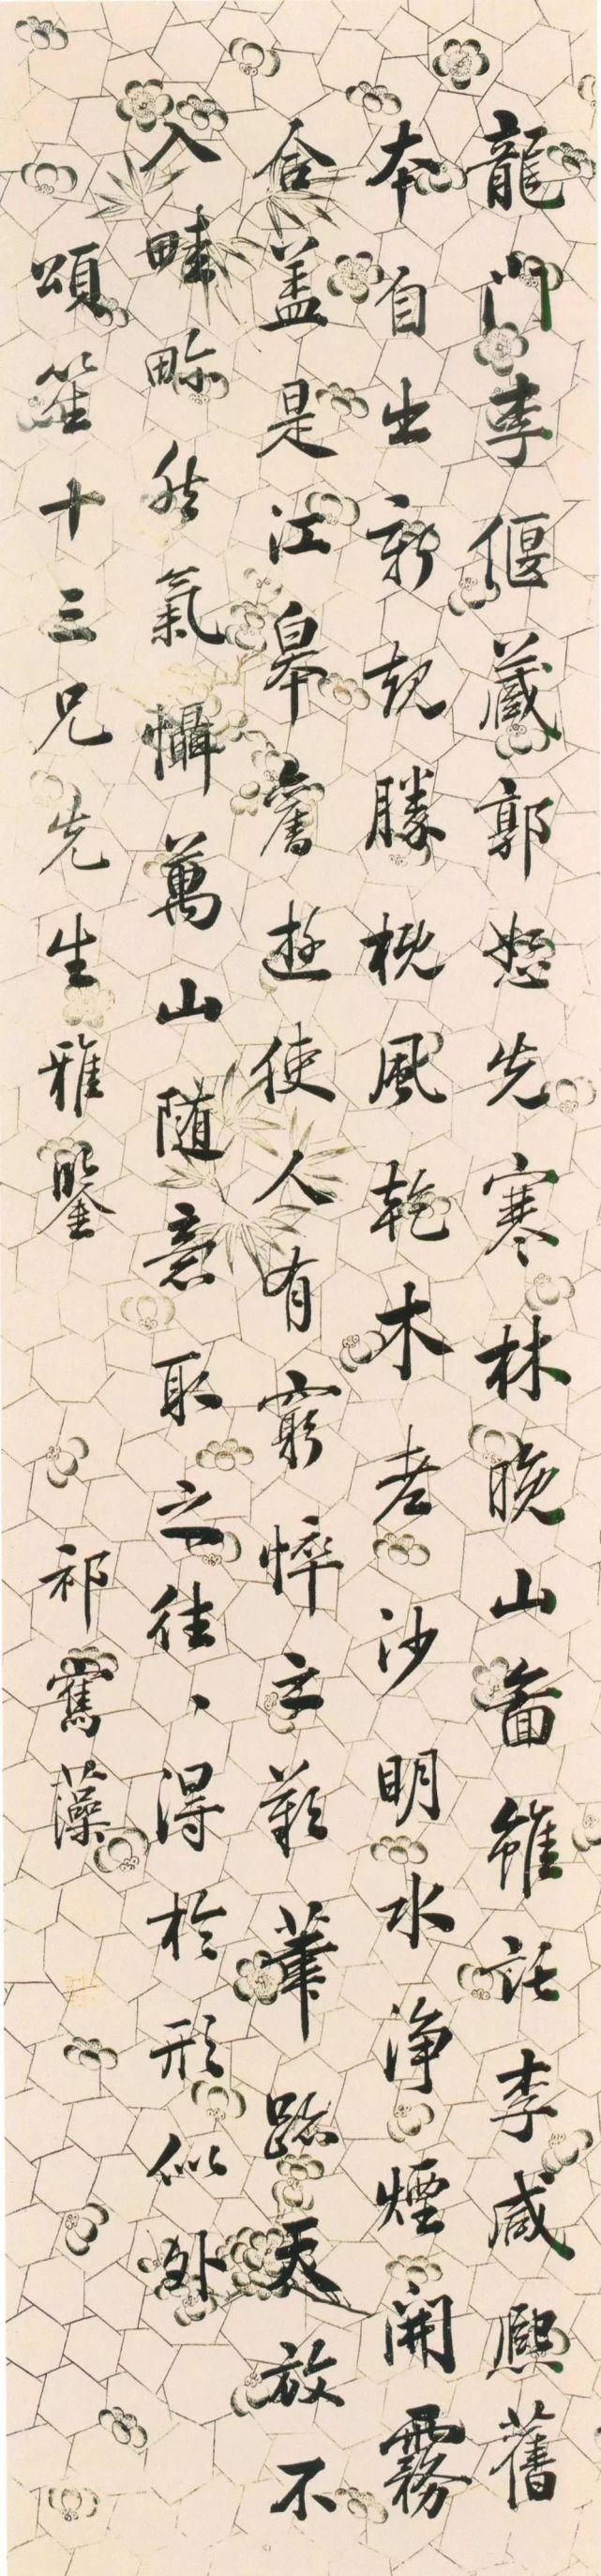 龍門李偃藏郭恕先寒林晚山圖雖託李咸熙舊
本自出新規勝槪風乾木老沙明水淨煙開霧
合盖是江皋舊遊使人有窮悴之歎筆蹤天放不
入畦畛然氣懾萬山隨意取之往、得於形似外
頌笙十三兄先生雅鑒 祁寯藻